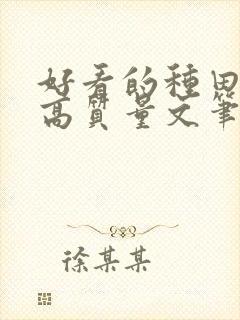 好看的種田
高質量文筆
徐某某